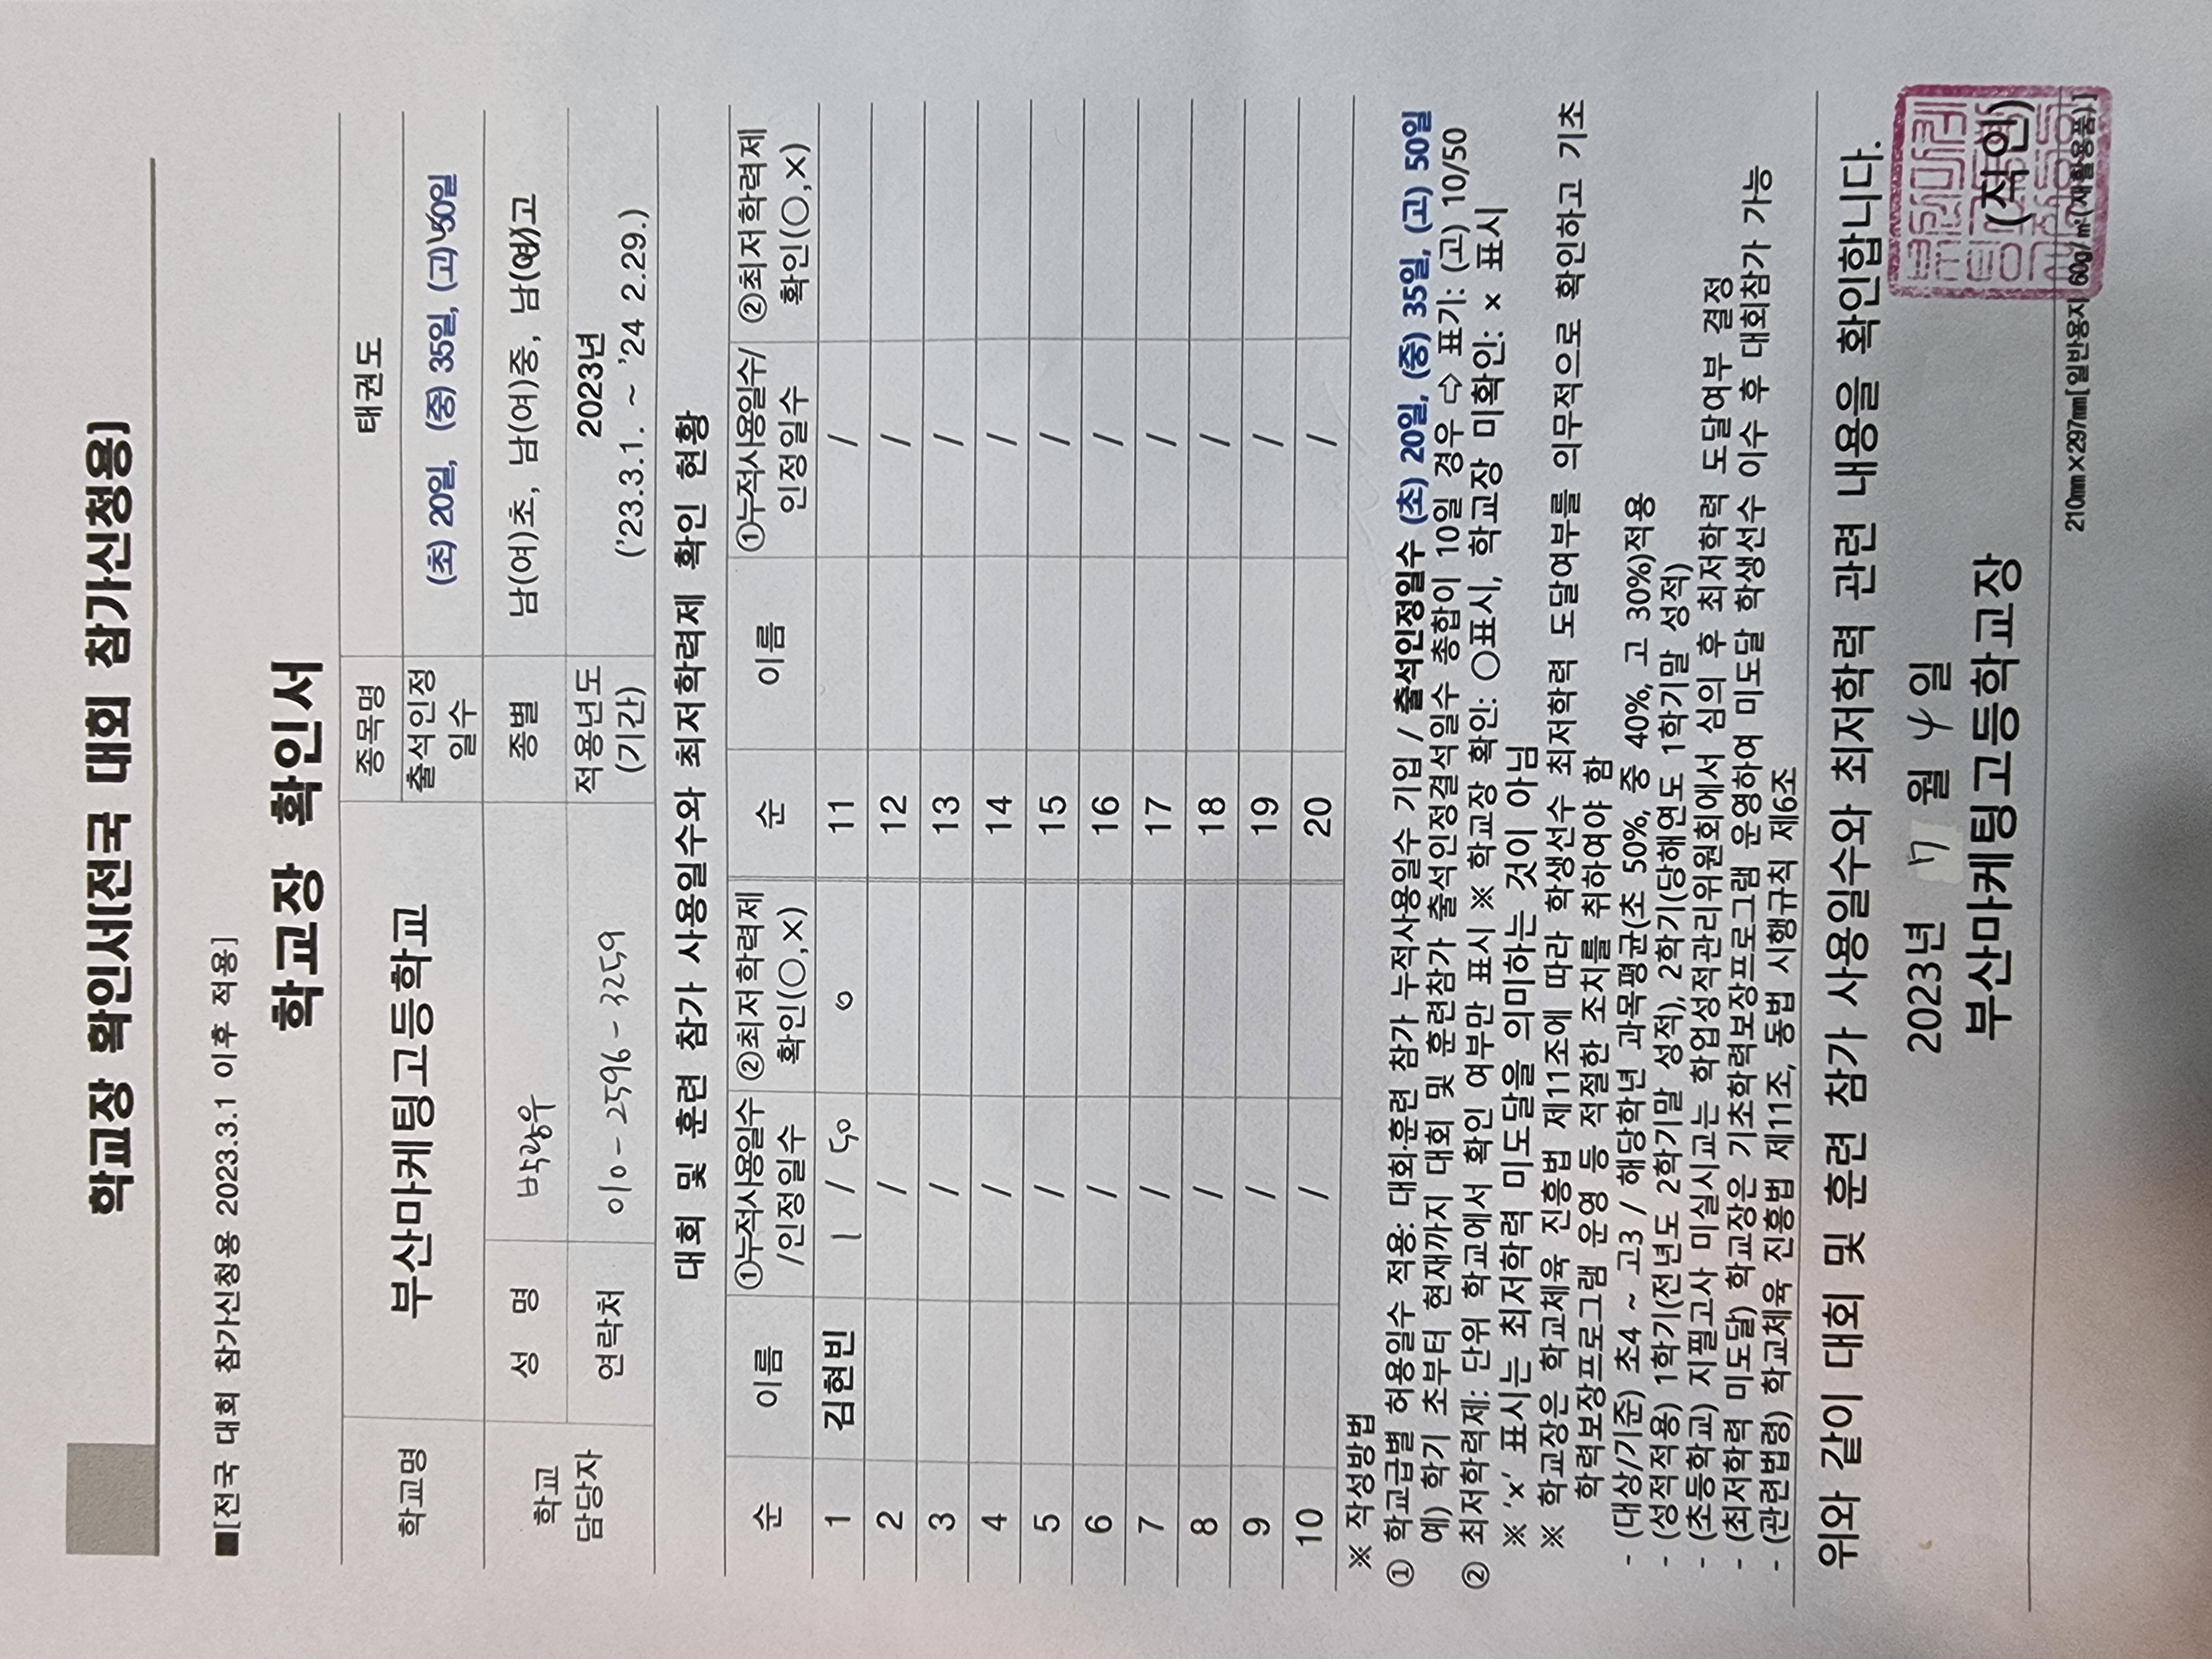 학교장 확인서(전국 대회 참가신청용)
■[전국 대회 참가신청용 2023.3.1 이후 적용]
학교장 확인서
학교명 부산마케팅고등학교 종목명 태권도
출석인정일수 (초) 20일, (중) 35일, (고) 50일
학교 담당자 성 명 종별 남(여)초, 남(여)중, 남(여)고
연락처 010-2596-3259 적용년도 (기간) 2023년 ('23.3.1. ~ '24 2.29.)
대회 및 훈련 참가 사용일수와 최저학력제 확인 현황
순 이름 ①누적사용일수/인정일수 ②최저학력제 확인(○,×) 순 이름 ①누적사용일수/인정일수 ②최저학력제 확인(○,×)
1 김현빈 1 / 50 ○ 11 /
2 / 12 /
3 / 13 /
4 / 14 /
5 / 15 /
6 / 16 /
7 / 17 /
8 / 18 /
9 / 19 /
10 / 20 /
※ 작성방법
① 학교급별 허용일수 적용: 대회·훈련 참가 누적사용일수 기입 / 출석인정일수 (초) 20일, (중) 35일, (고) 50일
예) 학기 초부터 현재까지 대회 및 훈련참가 출석인정결석일수 총합이 10일 경우 ⇨ 표기: (고) 10/50
② 최저학력제: 단위 학교에서 확인 여부만 표시 ※ 학교장 확인: ○표시, 학교장 미확인: × 표시
※ 'x' 표시는 최저학력 미도달을 의미하는 것이 아님
※ 학교장은 학교체육 진흥법 제11조에 따라 학생선수 최저학력 도달여부를 의무적으로 확인하고 기초
학력보장프로그램 운영 등 적절한 조치를 취하여야 함
- (대상/기준) 초4 ~ 고3 / 해당학년 과목평균(초 50%, 중 40%, 고 30%)적용
- (성적적용) 1학기(전년도 2학기말 성적), 2학기(당해연도 1학기말 성적)
- (초등학교) 지필고사 미실시교는 학업성적관리위원회에서 심의 후 최저학력 도달여부 결정
- (최저학력 미도달) 학교장은 기초학력보장프로그램 운영하여 미도달 학생선수 이수 후 대회참가 가능
- (관련법령) 학교체육 진흥법 제11조, 동법 시행규칙 제6조
위와 같이 대회 및 훈련 참가 사용일수와 최저학력 관련 내용을 확인합니다.
2023년 7 월 4 일
부산마케팅고등학교장 (직인)
210㎜×297㎜[일반용지 60g/㎡(재활용품)]